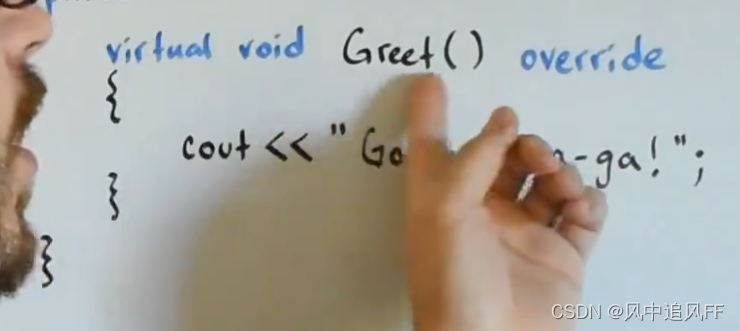 virtual void Greet() override
{
cout << " Go -ga!";
}
}
CSDN @风中追风FF